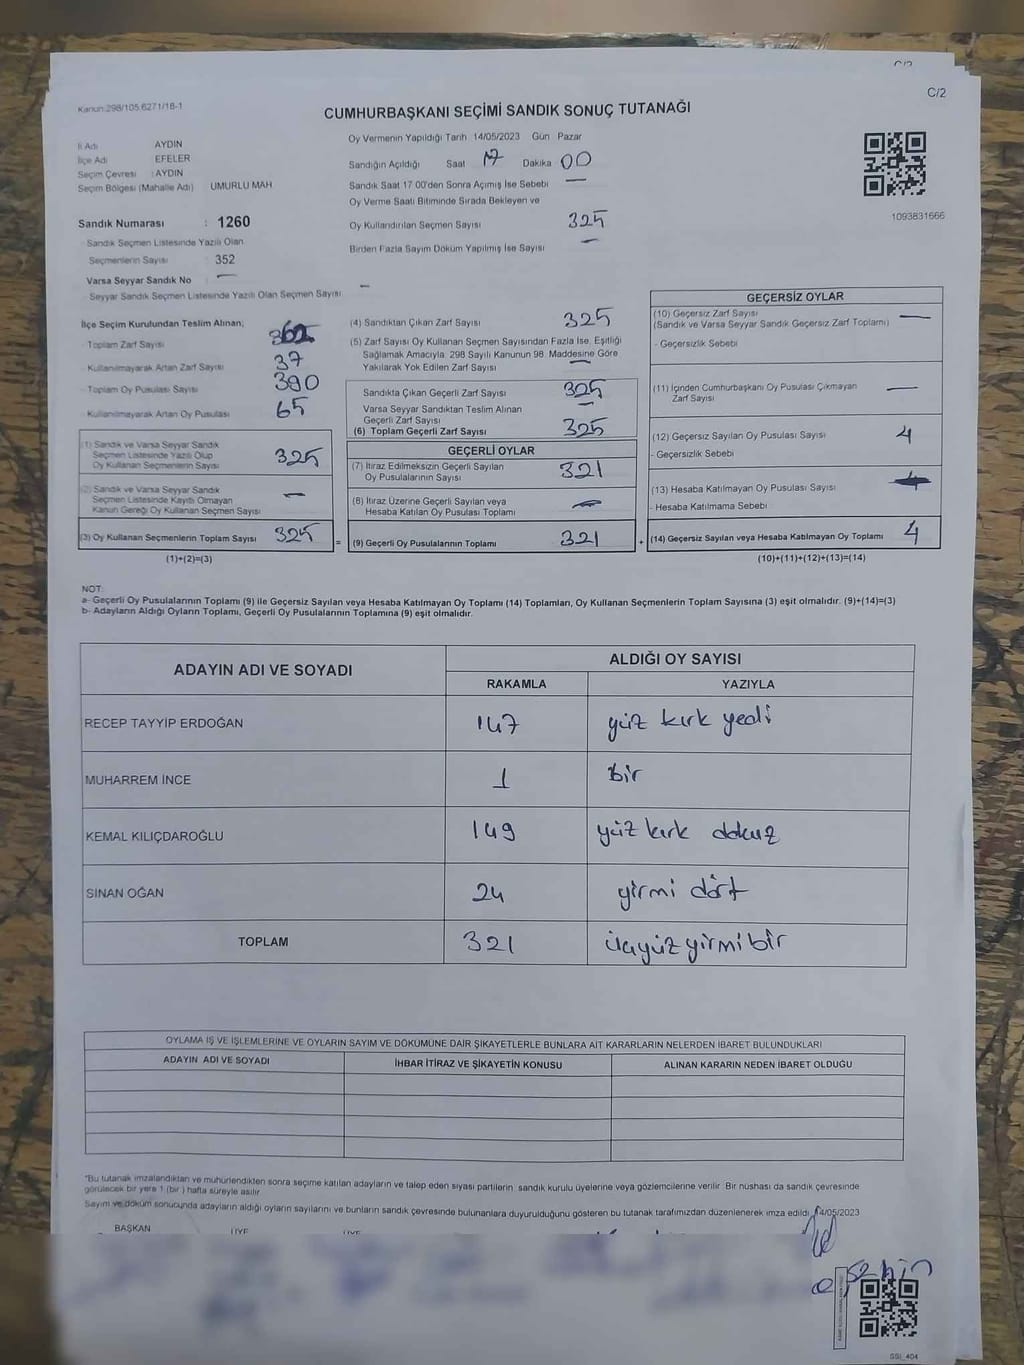 C/2
C/2
Kanun:298/105,6271/18-1
CUMHURBAŞKANI SEÇİMİ SANDIK SONUÇ TUTANAĞI
İl Adı AYDIN
İlçe Adı EFELER
Seçim Çevresi : AYDIN
Seçim Bölgesi (Mahalle Adı) UMURLU MAH
Sandık Numarası : 1260
Sandık Seçmen Listesinde Yazılı Olan
Seçmenlerin Sayısı 352
Varsa Seyyar Sandık No : —
Seyyar Sandık Seçmen Listesinde Yazılı Olan Seçmen Sayısı —
Oy Vermenin Yapıldığı Tarih 14/05/2023 Gün Pazar
Sandığın Açıldığı Saat 17 Dakika 00
Sandık Saat 17.00'den Sonra Açımış İse Sebebi —
Oy Verme Saati Bitiminde Sırada Bekleyen ve
Oy Kullandırılan Seçmen Sayısı 325
Birden Fazla Sayım Döküm Yapılmış İse Sayısı —
1093831666
İlçe Seçim Kurulundan Teslim Alınan;
Toplam Zarf Sayısı 362
Kullanılmayarak Artan Zarf Sayısı 37
Toplam Oy Pusulası Sayısı 390
Kullanılmayarak Artan Oy Pusulası 65
(1) Sandık ve Varsa Seyyar Sandık
Seçmen Listesinde Yazılı Olup
Oy Kullanan Seçmenlerin Sayısı 325
(2) Sandık ve Varsa Seyyar Sandık
Seçmen Listesinde Kayıtlı Olmayan
Kanun Gereği Oy Kullanan Seçmen Sayısı —
(3) Oy Kullanan Seçmenlerin Toplam Sayısı 325
(1)+(2)=(3)
(4) Sandıktan Çıkan Zarf Sayısı 325
(5) Zarf Sayısı Oy Kullanan Seçmen Sayısından Fazla İse, Eşitliği
Sağlamak Amacıyla, 298 Sayılı Kanunun 98. Maddesine Göre
Yakılarak Yok Edilen Zarf Sayısı —
Sandıkta Çıkan Geçerli Zarf Sayısı 325
Varsa Seyyar Sandıktan Teslim Alınan
Geçerli Zarf Sayısı —
(6) Toplam Geçerli Zarf Sayısı 325
GEÇERLİ OYLAR
(7) İtiraz Edilmeksizin Geçerli Sayılan
Oy Pusulalarının Sayısı 321
(8) İtiraz Üzerine Geçerli Sayılan veya
Hesaba Katılan Oy Pusulası Toplamı —
= (9) Geçerli Oy Pusulalarının Toplamı 321
GEÇERSİZ OYLAR
(10) Geçersiz Zarf Sayısı —
(Sandık ve Varsa Seyyar Sandık Geçersiz Zarf Toplamı)
- Geçersizlik Sebebi
(11) İçinden Cumhurbaşkanı Oy Pusulası Çıkmayan
Zarf Sayısı —
(12) Geçersiz Sayılan Oy Pusulası Sayısı 4
- Geçersizlik Sebebi
(13) Hesaba Katılmayan Oy Pusulası Sayısı
- Hesaba Katılmama Sebebi
+ (14) Geçersiz Sayılan veya Hesaba Katılmayan Oy Toplamı 4
(10)+(11)+(12)+(13)=(14)
NOT:
a- Geçerli Oy Pusulalarının Toplamı (9) ile Geçersiz Sayılan veya Hesaba Katılmayan Oy Toplamı (14) Toplamları, Oy Kullanan Seçmenlerin Toplam Sayısına (3) eşit olmalıdır. (9)+(14)=(3)
b- Adayların Aldığı Oyların Toplamı, Geçerli Oy Pusulalarının Toplamına (9) eşit olmalıdır.
ADAYIN ADI VE SOYADI ALDIĞI OY SAYISI
RAKAMLA YAZIYLA
RECEP TAYYİP ERDOĞAN 147 yüz kırk yedi
MUHARREM İNCE 1 bir
KEMAL KILIÇDAROĞLU 149 yüz kırk dokuz
SİNAN OĞAN 24 yirmi dört
TOPLAM 321 üçyüzyirmibir
OYLAMA İŞ VE İŞLEMLERİNE VE OYLARIN SAYIM VE DÖKÜMÜNE DAİR ŞİKAYETLERLE BUNLARA AİT KARARLARIN NELERDEN İBARET BULUNDUKLARI
ADAYIN ADI VE SOYADI İHBAR İTİRAZ VE ŞİKAYETİN KONUSU ALINAN KARARIN NEDEN İBARET OLDUĞU
*Bu tutanak imzalandıktan ve mühürlendikten sonra seçime katılan adayların ve talep eden siyasi partilerin, sandık kurulu üyelerine veya gözlemcilerine verilir. Bir nüshası da sandık çevresinde
görülecek bir yere 1 (bir) hafta süreyle asılır.
Sayım ve döküm sonucunda adayların aldığı oyların sayılarını ve bunların sandık çevresinde bulunanlara duyurulduğunu gösteren bu tutanak tarafımızdan düzenlenerek imza edildi. 14/05/2023
BAŞKAN ÜYE ÜYE
SSI_404